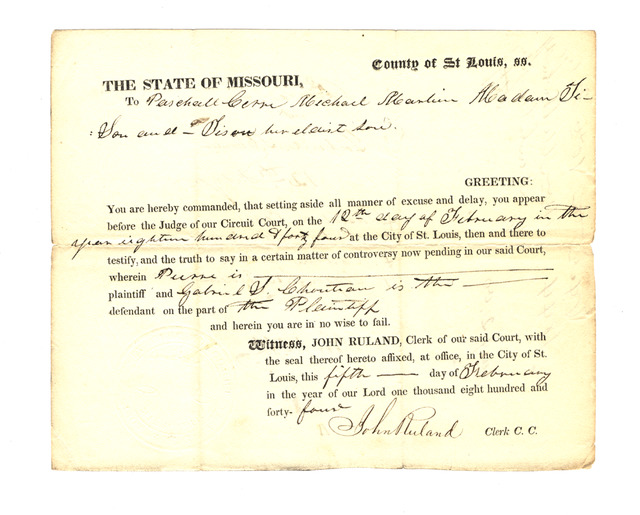 County of St Louis, ss.
THE STATE OF MISSOURI,
To Paschall Cerre Michael Martin Madam Ti-
: son and Tison her eldist son.
GREETING:
You are hereby commanded, that setting aside all manner of excuse and delay, you appear
before the Judge of our Circuit Court, on the 12th day of February in the
year eighteen hundred & forty four at the City of St. Louis, then and there to
testify, and the truth to say in a certain matter of controversy now pending in our said Court,
wherein Pierre is
plaintiff and Gabriel S. Chouteau is the
defendant on the part of the Plaintiff
and herein you are in no wise to fail.
Witness, JOHN RULAND, Clerk of our said Court, with
the seal thereof hereto affixed, at office, in the City of St.
Louis, this fifth day of February
in the year of our Lord one thousand eight hundred and
forty-four
John Ruland Clerk C. C.